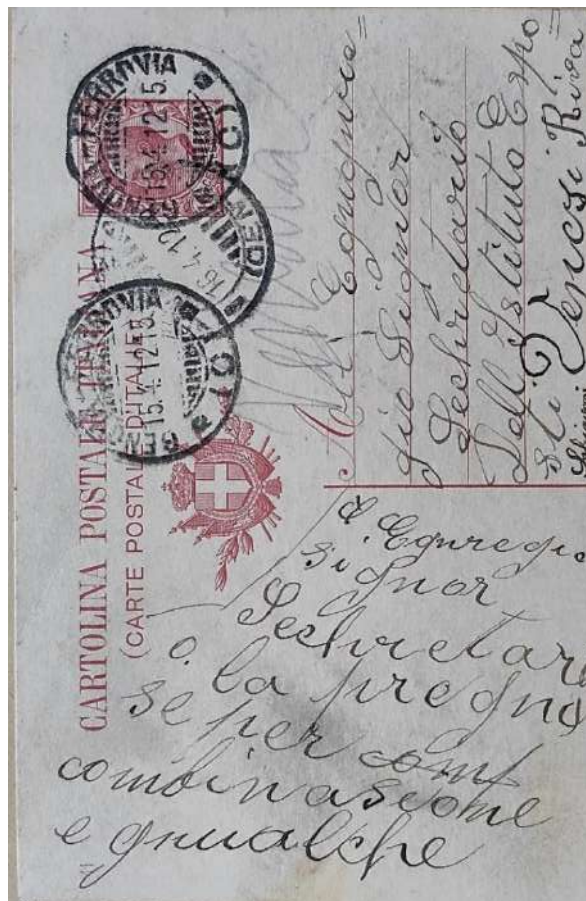 CARTOLINA POSTALE ITALIANA
(CARTE POSTALE D'ITALIE)
GENOVA FERROVIA
15.4.12-5
16.4.12
GENOVA FERROVIA
15.4.12-5
All Egnogre=
gio Signor
Sechretario
Dell Istituto Espo
sti Venesi Riva
E Egnregio
signor
Sechretare
o la pregno
se per
combinascione
e gnualche